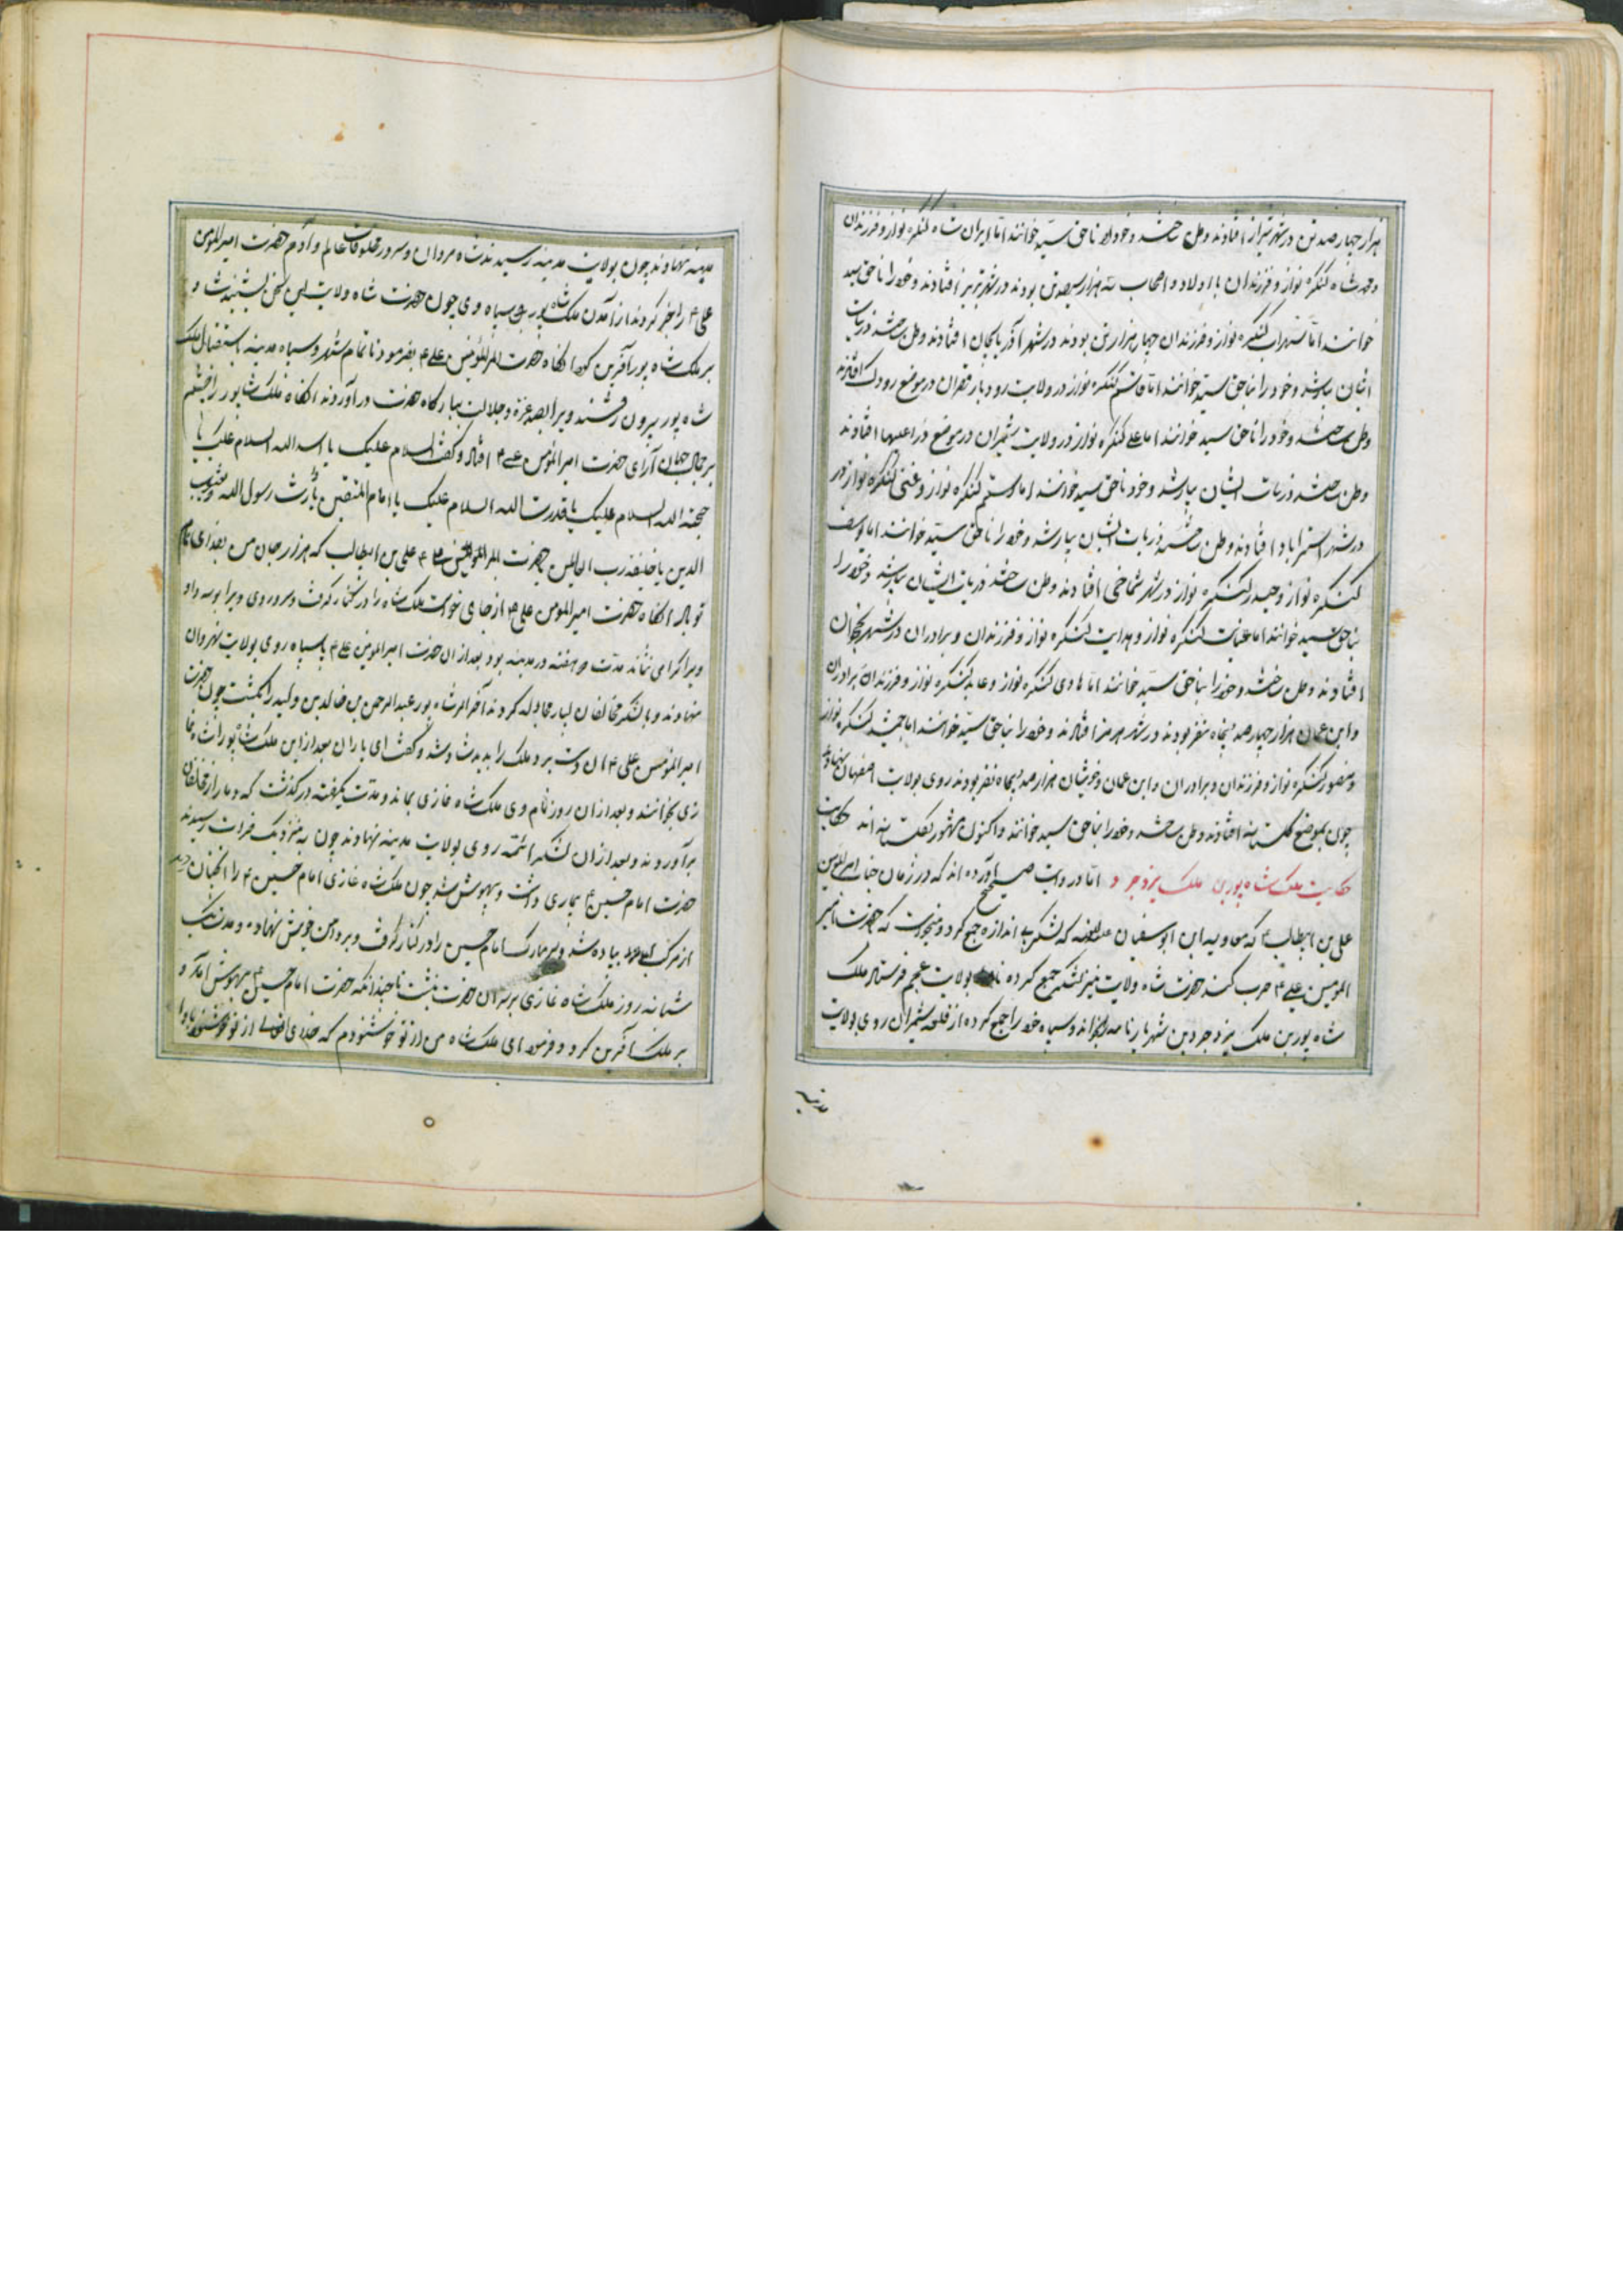 هزار چهارصد تن در شهر شیراز افتادند وطن ساختند و خود را ناحق سید خوانند اما ایران شاه کنکره نواز و فرزندان
و محمد شاه کنکره نواز و فرزندان با اولاد و اصحاب سه هزار سیصد تن بودند در شهر تبریز افتادند و خود را ناحق سید
خوانند اما سهراب کنکره نواز و فرزندان چهار هزار تن بودند در شهر آذربایجان افتادند وطن ساختند ذریات
ایشان بسیار شد و خود را بناحق سید خوانند اما قاسم کنکره نواز در ولایت رودبار قصران در موضع رودک افتادند
وطن ساختند و خود را ناحق سید خوانند اما علی کنکره نواز در ولایت شمیران در موضع افتادند
وطن ساختند ذریات ایشان بسیار شد و خود ناحق سید خوانند اما رستم کنکره نواز و غنی کنکره نواز در
در شهر استراباد افتادند وطن ساختند ذریات ایشان بسیار شد و خود را ناحق سید خوانند اما یوسف
کنکره نواز و حیدر کنکره نواز در شهر شماخی افتادند وطن ساختند ذریات ایشان بسیار شد و خود را
بناحق سید خوانند اما عنایت کنکره نواز و هدایت کنکره نواز و فرزندان و برادران در شهر نخجوان
افتادند وطن ساختند و خود را بناحق سید خوانند اما هادی کنکره نواز و عابد کنکره نواز و فرزندان برادران
و ابن عمان هزار چهارصد پنجاه نفر بودند در شهر هرمز افتادند و خود را بناحق سید خوانند اما جمشید کنکره نواز
و منصور کنکره نواز و فرزندان و برادران و ابن عمان و خویشان هزار صد پنجاه نفر بودند روی بولایت اصفهان نهادند
چون بموضع کلستانه افتادند وطن ساختند و خود را بناحق سید خوانند و اکنون مشهور بکلستانه اند حکایت
حکایت ملک شاه پور بن ملک یزدجرد اما در روایت صحیح آورده اند که در زمان جناب امیرالمؤمنین
علی بن ابیطالب ع که معاویه ابن ابوسفیان علیه اللعنه که لشکر بی اندازه جمع کرد و میخواست که حضرت امیر
المؤمنین علی ع حرب کند حضرت شاه ولایت نیز لشکر جمع کرده نامه بولایت عجم فرستاد ملک
شاه پور بن ملک یزدجرد بن شهریار نامه را بخواند و سپاه خود را جمع کرده از قلعه شمیران روی بولایت
مدینه
مدینه نهادند چون بولایت مدینه رسیدند شاه مردان و سرور مخلوقات عالم و آدم حضرت امیرالمؤمنین
علی ع را خبر کردند از آمدن ملک شاه پور با سپاه وی چون حضرت شاه ولایت این سخن بشنید شاد
بر ملک شاه پور آفرین کرد آنکاه حضرت امیرالمؤمنین علی ع بفرمود تا تمام شهر و سپاه مدینه استقبال ملک
شاه پور بیرون رفتند ویرا بصد عزة و جلالت ببارکاه حضرت در آوردند آنکاه ملک شاپور را چشم
بر جمال جهان آرای حضرت امیرالمؤمنین علی ع افتاد و گفت السلام علیک یا اسد الله السلام علیک یا
حجة الله السلام علیک یا قدرت الله السلام علیک یا امام المتقین یا وارث رسول الله و یعسوب
الدین یا خلیفه رب العالمین حضرت امیرالمؤمنین ع علی بن ابیطالب که هزار جان من بفدای نام
تو باد آنکاه حضرت امیرالمؤمنین علی ع از جای خواست ملک شاه را در کنار گرفت و سر و روی ویرا بوسه داد
ویرا گرامی نشاند مدت هفته در مدینه بود بعد از آن حضرت امیرالمؤمنین علی ع با سپاه روی بولایت نهروان
نهادند و با لشکر مخالفان بسیار مجادله کردند آخر الامر شاه پور عبدالرحمن بن خالد بن ولید را بکشت چون حضرت
امیرالمؤمنین علی ع آن دست برد ملک را بدید شاد شد و گفت ای یاران بعد از این ملک شاپور را شاه غا
زی بخوانند و بعد از آن روز نام وی ملک شاه غازی بماند و مدت یکهفته در گذشت که دمار از مخالفان
برآوردند و بعد از آن لشکر ائمه روی بولایت مدینه نهادند چون به نزدیک فرات رسیدند
حضرت امام حسین ع بیماری داشت و بیهوش شد چون ملک شاه غازی امام حسین ع را آنچنان دید
از مرکب پیاده شد و سر مبارک امام حسین را در کنار گرفت و بر دامن خویش نهاده و مدت یک
شبانه روز ملک شاه غازی بر سر آن حضرت بنشست تا چندانکه حضرت امام حسین ع بهوش آمد و
بر ملک آفرین کرد و فرمود ای ملک شاه من از تو خوشنودم که خدای تعالی از تو خوشنود باد